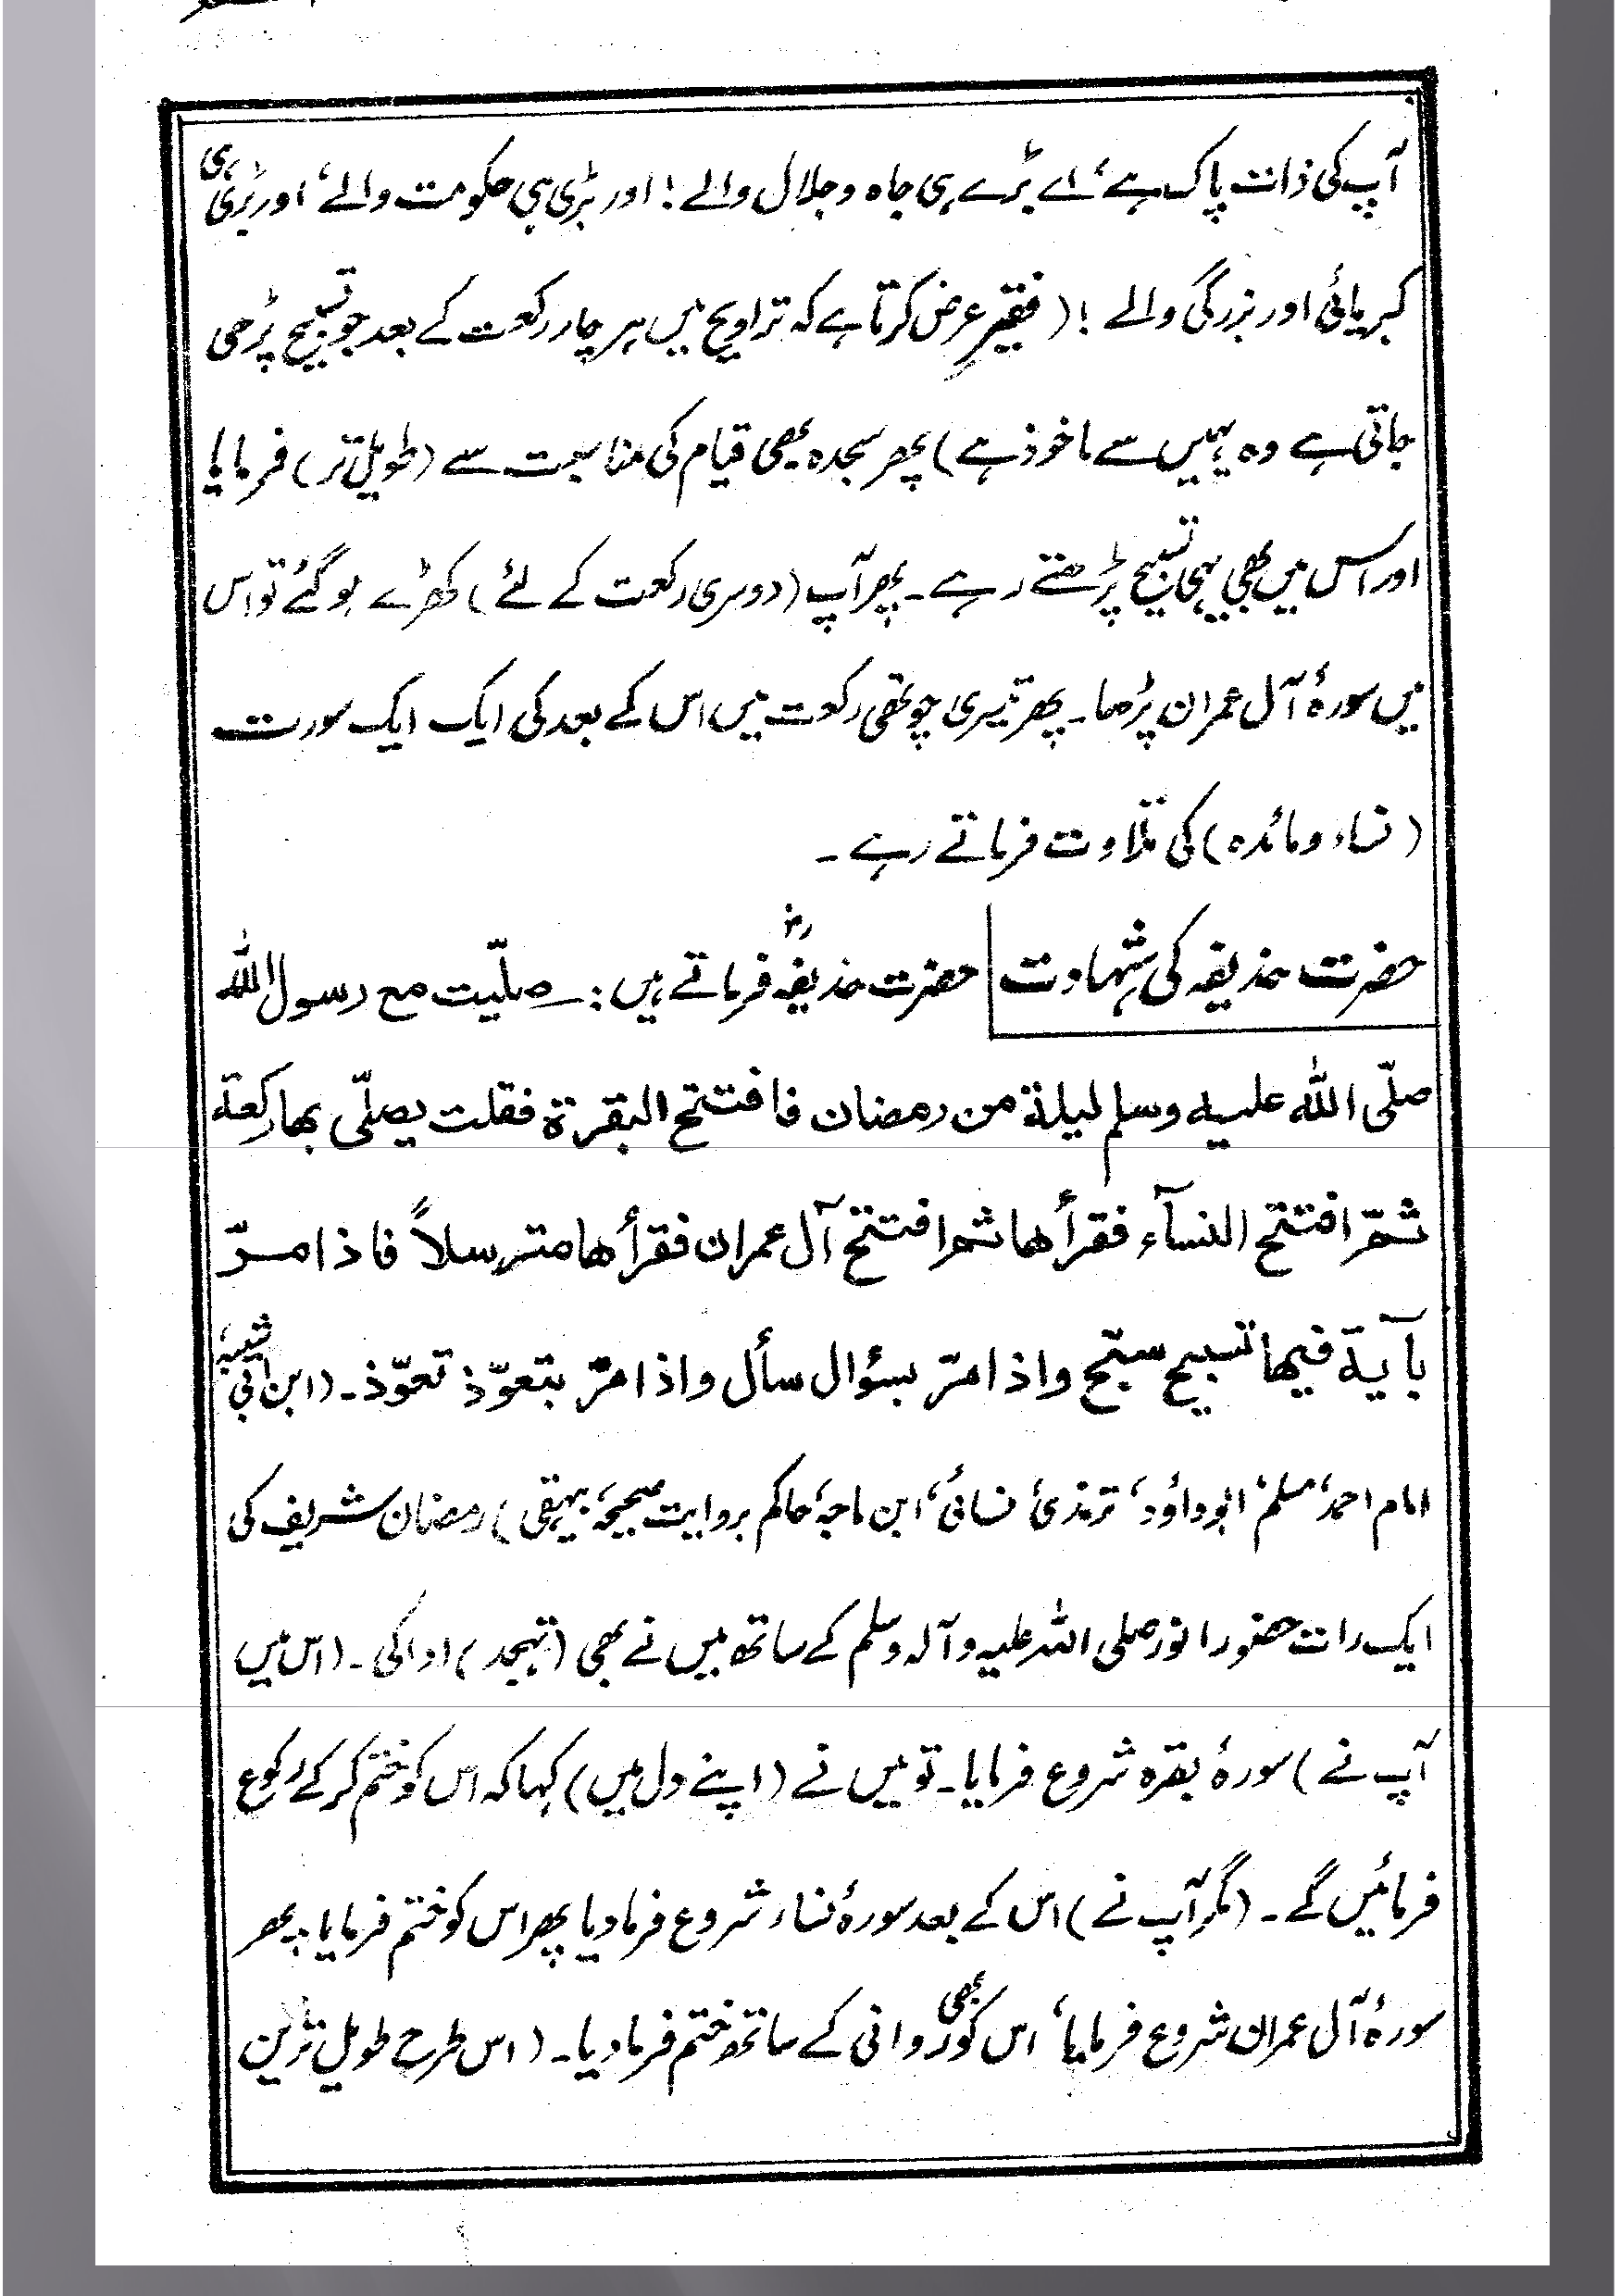 آپ کی ذات پاک ہے، اے بڑے ہی جاہ و جلال والے! اور بڑی ہی حکومت والے، اور بڑی ہی
کبریائی اور بزرگی والے! (فقیر عرض کرتا ہے کہ تراویح میں ہر چار رکعت کے بعد جو تسبیح پڑھی
جاتی ہے وہ یہیں سے ماخوذ ہے) پھر سجدہ بھی قیام کی مناسبت سے (طویل تر) فرمایا
اور اس میں بھی یہی تسبیح پڑھتے رہے۔ پھر آپ (دوسری رکعت کے لئے) کھڑے ہو گئے تو اس
میں سورۂ آل عمران پڑھا۔ پھر تیسری چوتھی رکعت میں اس کے بعد کی ایک ایک سورت
(نساء و مائدہ) کی تلاوت فرماتے رہے۔
حضرت حذیفہ کی شہادت حضرت حذیفہؓ فرماتے ہیں: صلّیت مع رسول اللہ
صلّی اللہ علیہ وسلم لیلة من رمضان فافتتح البقرة فقلت یصلّی بھا رکعة
ثمّ افتتح النسآء فقرأھا ثم افتتح آل عمران فقرأھا مترسلاً فاذا مرّ
بآیة فیھا تسبیح سبّح واذا مرّ بسؤال سأل واذا مرّ بتعوّذ تعوّذ۔ (ابن ابی شیبہ،
امام احمد، مسلم، ابوداؤد، ترمذی، نسائی، ابن ماجہ، حاکم بروایت صحیحہ، بیہقی) رمضان شریف کی
ایک رات حضور انور صلی اللہ علیہ وآلہ وسلم کے ساتھ میں نے بھی (تہجد) ادا کی۔ (اس میں
آپ نے) سورۂ بقرہ شروع فرمایا۔ تو میں نے (اپنے دل میں) کہا کہ اس کو ختم کر کے رکوع
فرمائیں گے۔ (مگر آپ نے) اس کے بعد سورۂ نساء شروع فرما دیا پھر اس کو ختم فرمایا۔ پھر
سورۂ آل عمران شروع فرمایا، اس کو بھی روانی کے ساتھ ختم فرما دیا۔ (اس طرح طویل ترین